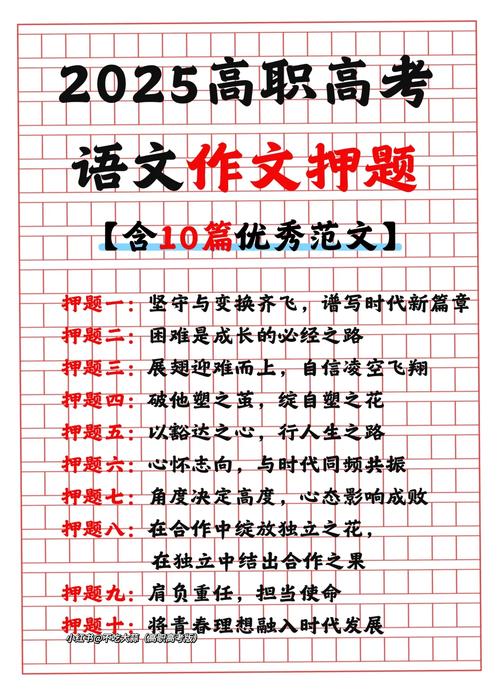 2025高职高考
语文作文押题
【含10篇优秀范文】
押题一：坚守与变换齐飞，谱写时代新篇章
押题二：困难是成长的必经之路
押题三：展翅迎难而上，自信凌空飞翔
押题四：破他塑之茧，绽自塑之花
押题五：以豁达之心，行人生之路
押题六：心怀志向，与时代同频共振
押题七：角度决定高度，心态影响成败
押题八：在合作中绽放独立之花，
在独立中结出合作之果
押题九：肩负重任，担当使命
押题十：将青春理想融入时代发展
小红书@不吃大蒜（高职高考版）